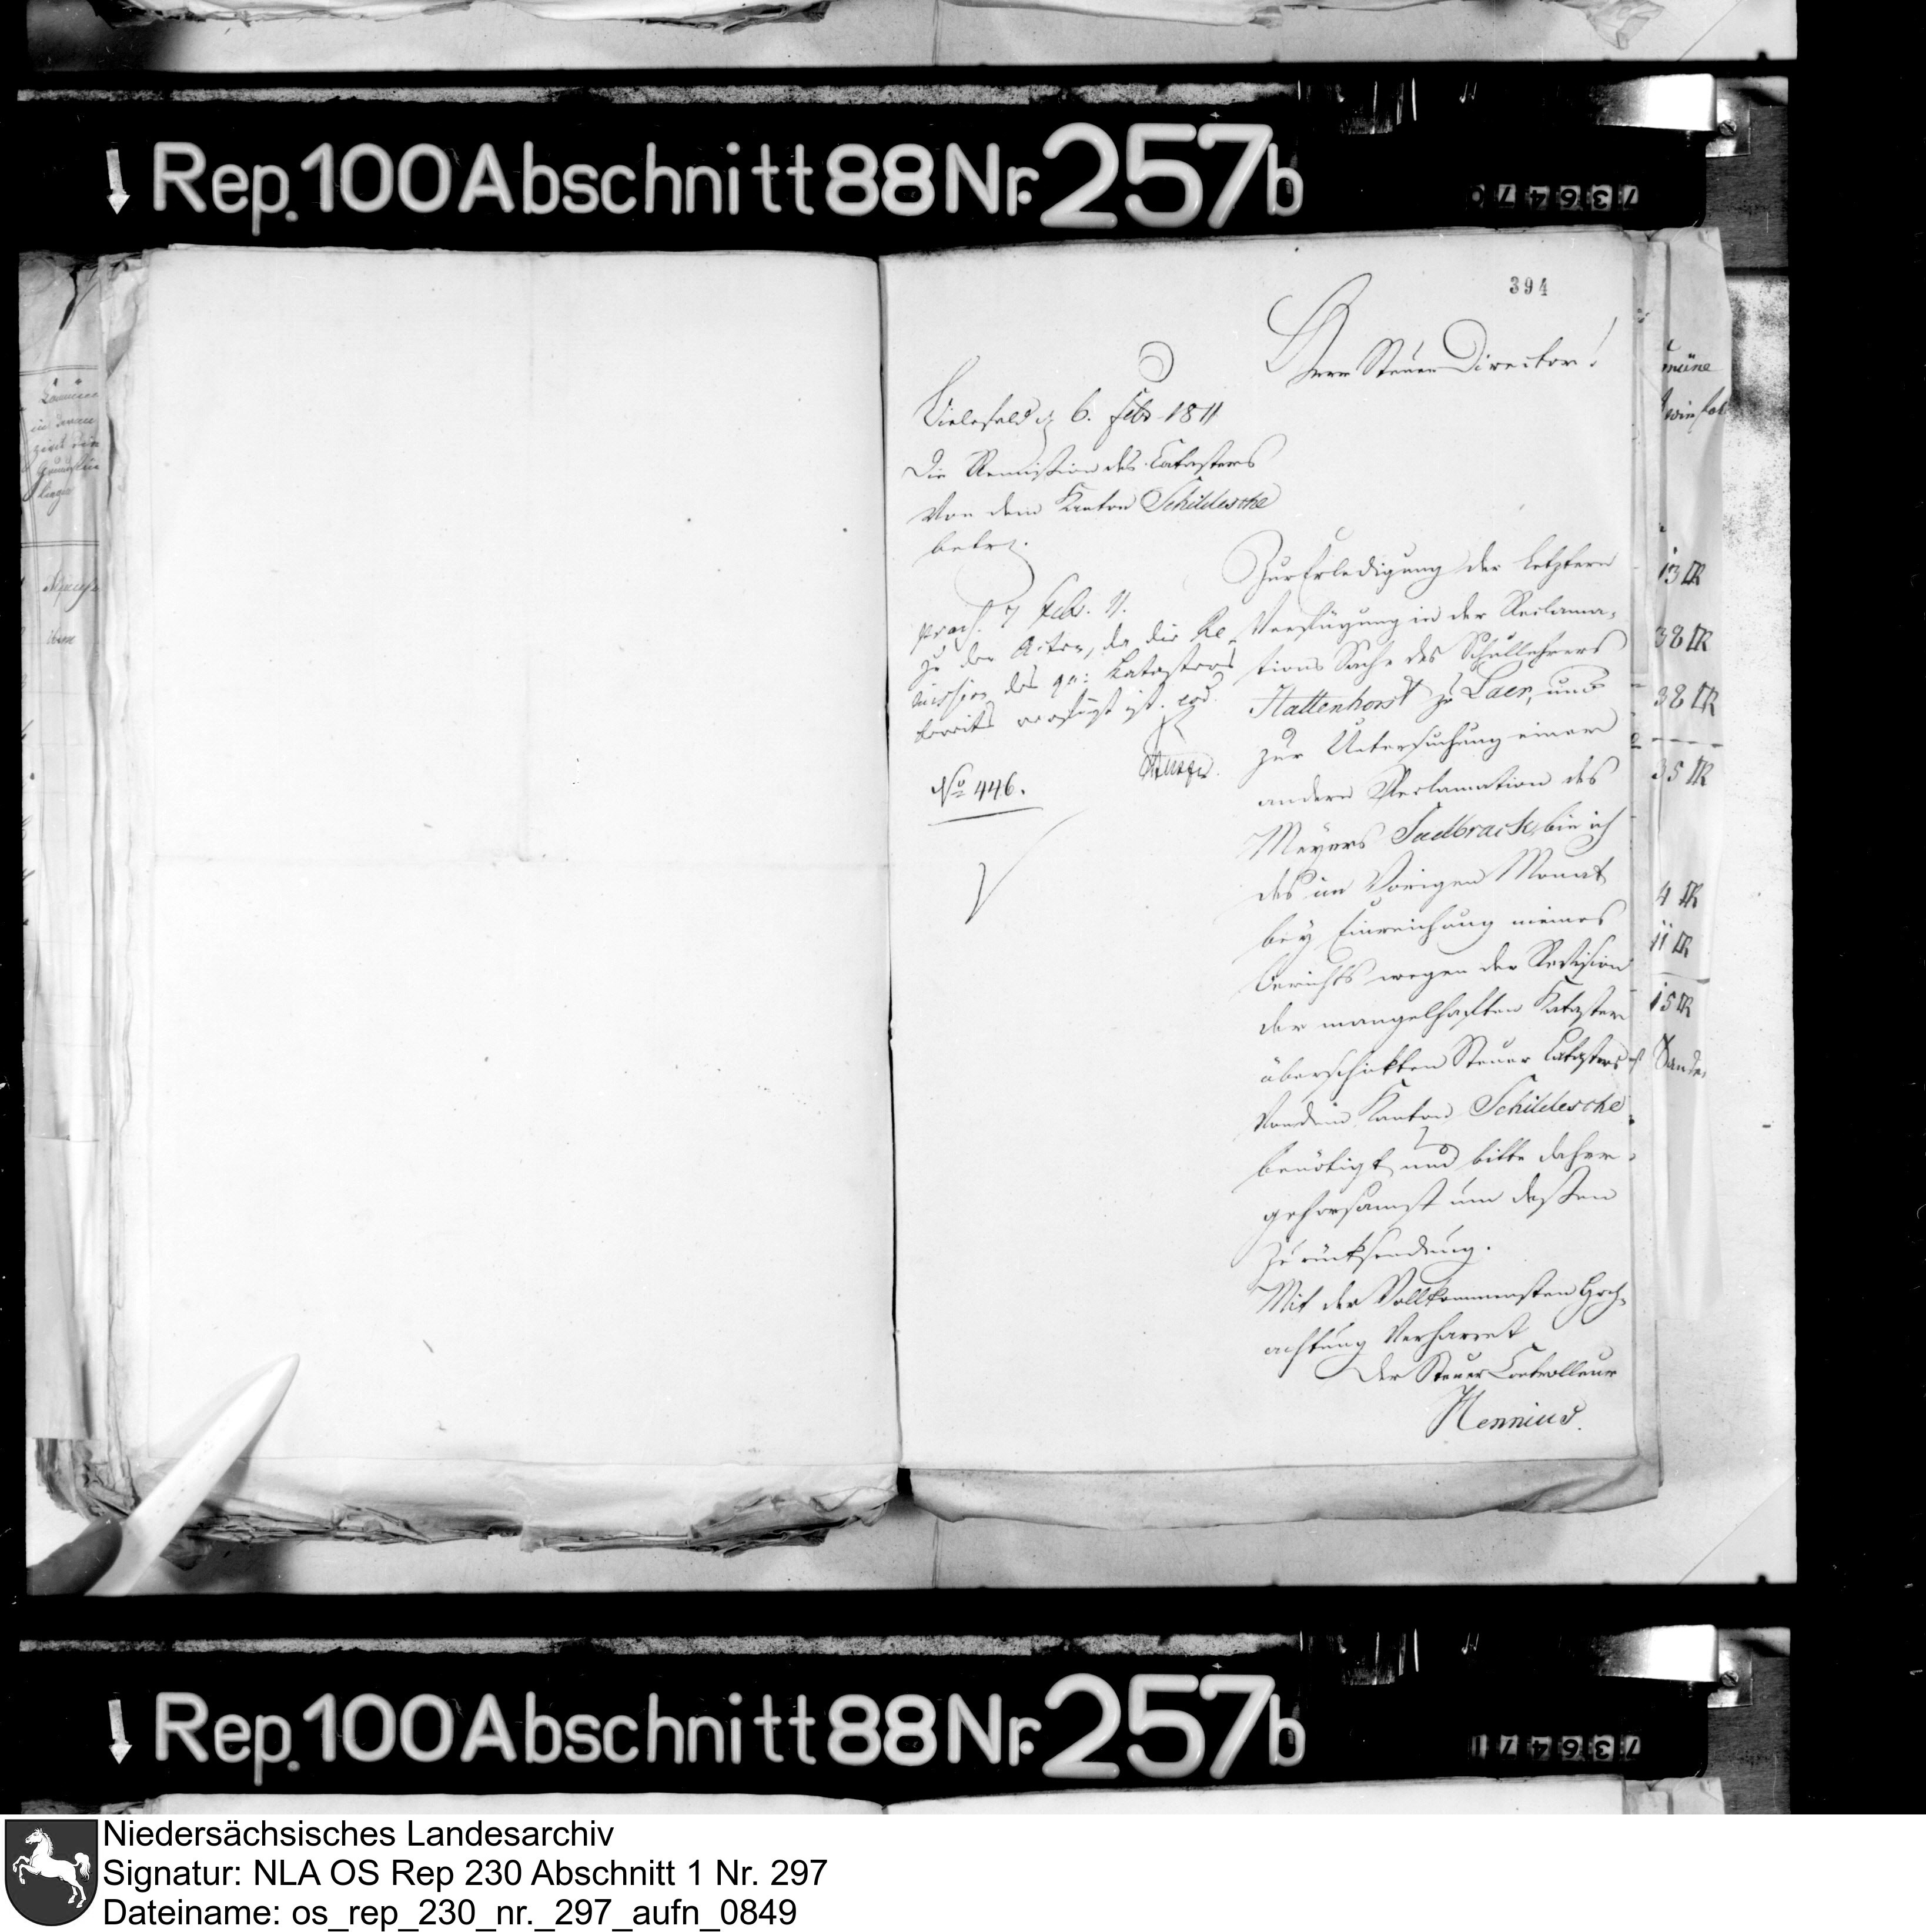 Rep. 100 Abschnitt 88 Nr. 257b
736470
394
Herr Steuer Director!
Bielefeld d 6. Feb 1811
Die Remission des Catasters
Von dem Kanton Schildesche
betr.
praes. 7 Feb. 11.
zu den Acten, da die Re
mission des qu: Katasters
bereits verfügt ist. eod.
No 446.
Zur Erledigung der letztern
Verfügung in der Reclama-
tions Sache des Schullehrers
Hattenhorst zu Laer, und
zur Untersuchung einer
andern Reclamation des
Meyers Sudbrack, bin ich
des im Vorigen Monat
bey Einreichung meines
Berichts wegen der Revision
der mangelhaften Kataster
überschickten Steuer Catasters
Von dem Kanton Schildesche
benötigt und bitte daher
gehorsamst um dessen
Zurücksendung.
Mit der Vollkommensten Hoch-
achtung Verharret
Der Steuer Controlleur
Hennius.
13
38
38
35
4
11
15
Rep. 100 Abschnitt 88 Nr. 257b
736471
Niedersächsisches Landesarchiv
Signatur: NLA OS Rep 230 Abschnitt 1 Nr. 297
Dateiname: os_rep_230_nr._297_aufn_0849